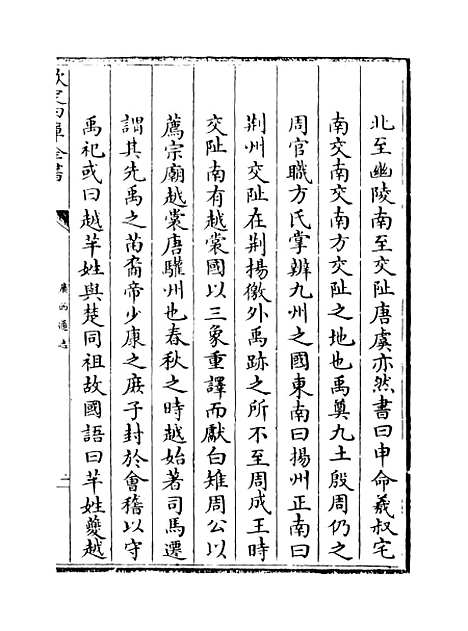 北至幽陵南至交阯唐虞亦然書曰申命羲叔宅
南交南交南方交阯之地也禹奠九土殷周仍之
周官職方氏掌辦九州之國東南曰揚州正南曰
荆州交阯在荆揚徼外禹跡之所不至周成王時
交阯南有越裳國以三象重譯而獻白雉周公以
薦宗廟越裳唐驩州也春秋之時越始著司馬遷
謂其先禹之苗裔帝少康之庶子封於會稽以守
禹祀或曰越芊姓與楚同祖故國語曰芊姓夔越
欽定四庫全書
廣西通志
二